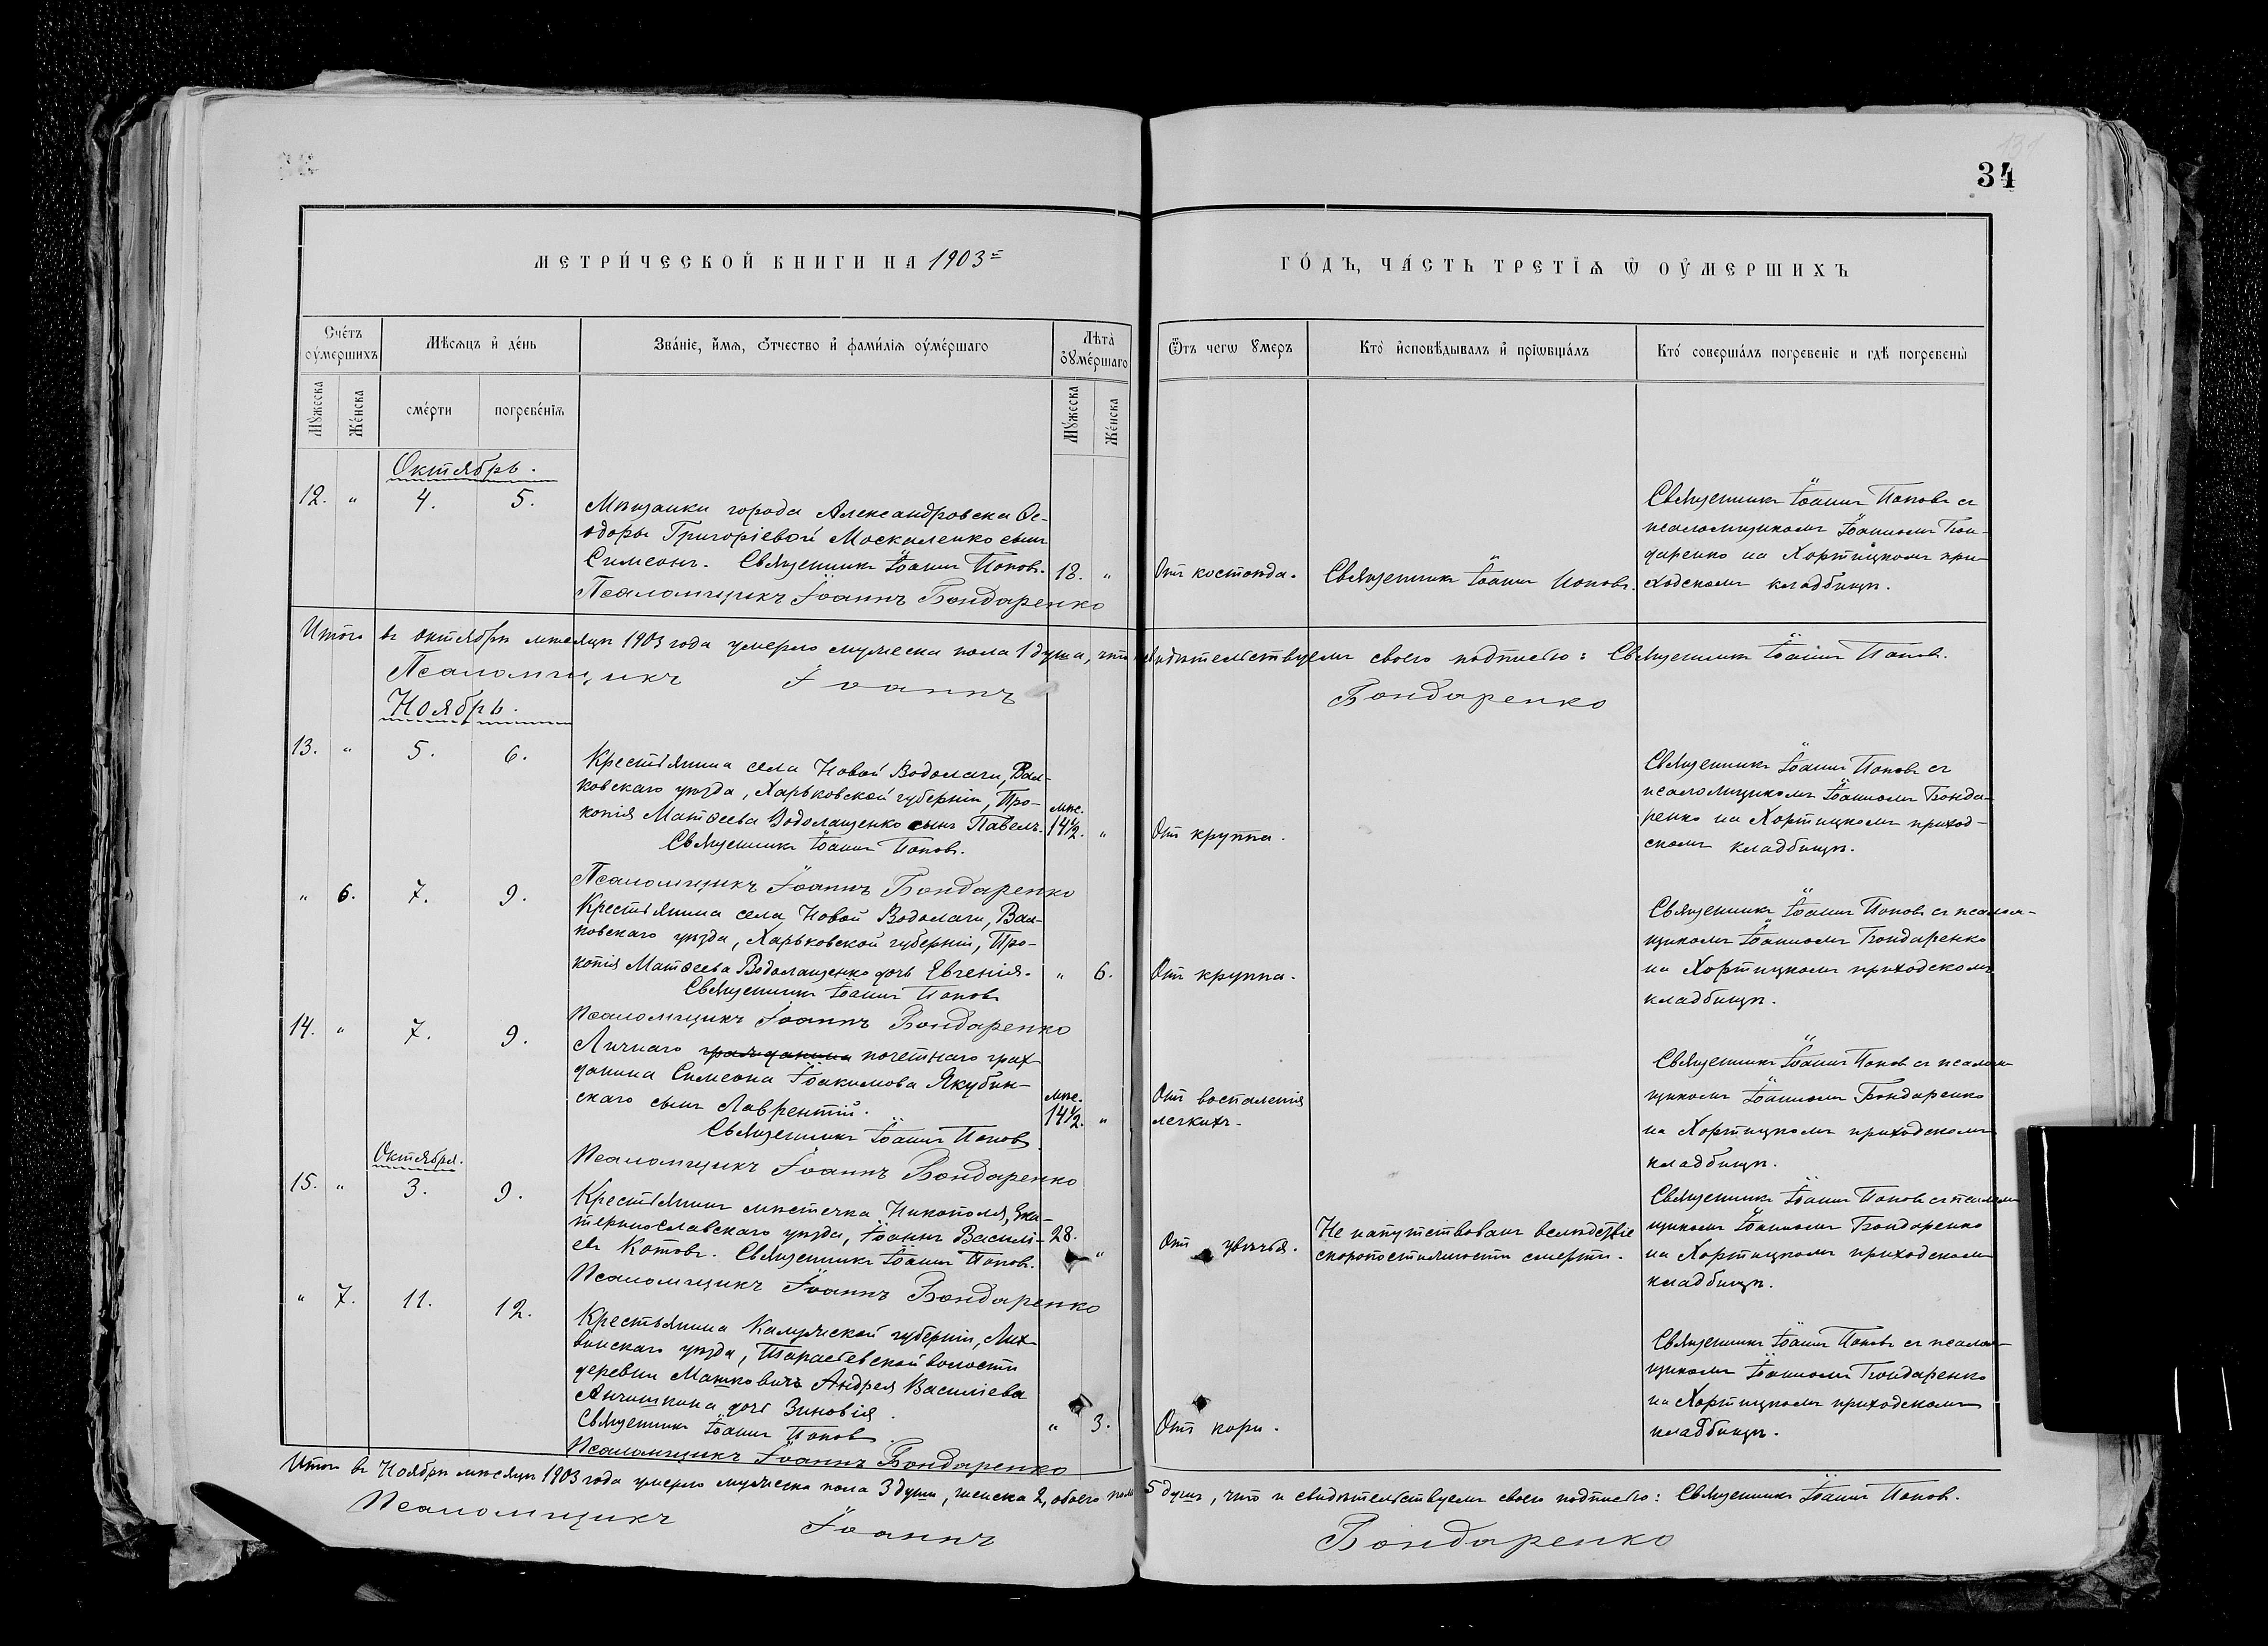 34
МЕТРИ́ЧЕСКОЙ КНИГИ НА 1903й
ГО́ДЪ, ЧА́СТЬ ТРЕТІѦ Ѿ ОУ҆МЕРШИХЪ
Сче́тъ оу҆ме́ршихъ
Мѣсѧцъ и҆ де́нь
Зва́нїе, и҆́мѧ, ѻ҆́тчество и҆ фами́лїѧ оу҆ме́ршаго
Лѣта̀ оу҆ме́ршаго
Ѿъ чегѡ ᲂумеръ
Кто̀ и҆сповѣдывалъ и҆ прїѡбща́лъ
Кто́ соверша́лъ погребенїе и гдѣ погребены̀
Мꙋ́жеска
Же́нска
сме́рти
погребе́нїѧ
Мꙋ́жеска
Же́нска
Октябрь.
12. " 4. 5.
Мѣщанки города Александровска Ѳе-
одоры Григоріевой Москаленко сынъ
Симеонъ. Священникъ Іоаннъ Поповъ.
18. "
Псаломщикъ Іоаннъ Бондаренко
Отъ костоѣда.
Священникъ Іоаннъ Поповъ.
Священникъ Іоаннъ Поповъ съ
псаломщикомъ Іоанномъ Бон-
даренко на Хортицкомъ при-
ходскомъ кладбищѣ.
Итого въ октябрѣ мѣсяцѣ 1903 года умерло мужеска пола 1 душа, что и свидѣтельствуемъ своею подписью: Священникъ Іоаннъ Поповъ.
Псаломщикъ Іоаннъ Бондаренко
Ноябрь.
13. " 5. 6.
Крестьянина села Новой Водолаги, Вал-
ковскаго уѣзда, Харьковской губерніи, Про-
копія Матѳеева Водолащенко сынъ Павелъ.
мѣс.
14½. "
Священникъ Іоаннъ Поповъ.
Псаломщикъ Іоаннъ Бондаренко
Отъ круппа.
Священникъ Іоаннъ Поповъ съ
псаломщикомъ Іоанномъ Бонда-
ренко на Хортицкомъ приход-
скомъ кладбищѣ.
" 6. 7. 9.
Крестьянина села Новой Водолаги, Вал-
ковскаго уѣзда, Харьковской губерніи, Про-
копія Матѳеева Водолащенко дочь Евгенія.
" 6.
Священникъ Іоаннъ Поповъ
Псаломщикъ Іоаннъ Бондаренко
Отъ круппа.
Священникъ Іоаннъ Поповъ съ псалом-
щикомъ Іоанномъ Бондаренко
на Хортицкомъ приходскомъ
кладбищѣ.
14. " 7. 9.
Личнаго гражданина почетнаго граж-
данина Симеона Іоакимова Якубин-
скаго сынъ Лаврентій.
мѣс.
14½. "
Священникъ Іоаннъ Поповъ
Псаломщикъ Іоаннъ Бондаренко
Отъ воспаленія
легкихъ.
Священникъ Іоаннъ Поповъ съ псалом-
щикомъ Іоанномъ Бондаренко
на Хортицкомъ приходскомъ
кладбищѣ.
Октября.
15. " 3. 9.
Крестьянинъ мѣстечка Никополя, Ека-
теринославскаго уѣзда, Іоаннъ Василі-
евъ Котовъ. Священникъ Іоаннъ Поповъ.
28. "
Псаломщикъ Іоаннъ Бондаренко
Отъ увѣчья.
Не напутствованъ вслѣдствіе
скоропостижности смерти.
Священникъ Іоаннъ Поповъ съ псалом-
щикомъ Іоанномъ Бондаренко
на Хортицкомъ приходскомъ
кладбищѣ.
" 7. 11. 12.
Крестьянина Калужской губерніи, Лих-
винскаго уѣзда, волости
деревни Машковичъ Андрея Василіева
Анчишкина дочь Зиновія.
Священникъ Іоаннъ Поповъ.
" 3.
Псаломщикъ Іоаннъ Бондаренко
Отъ кори.
Священникъ Іоаннъ Поповъ съ псалом-
щикомъ Іоанномъ Бондаренко
на Хортицкомъ приходскомъ
кладбищѣ.
Итого въ Ноябрѣ мѣсяцѣ 1903 года умерло мужеска пола 3 души, женска 2, обоего пола 5 душъ, что и свидѣтельствуемъ своею подписью: Священникъ Іоаннъ Поповъ.
Псаломщикъ Іоаннъ Бондаренко